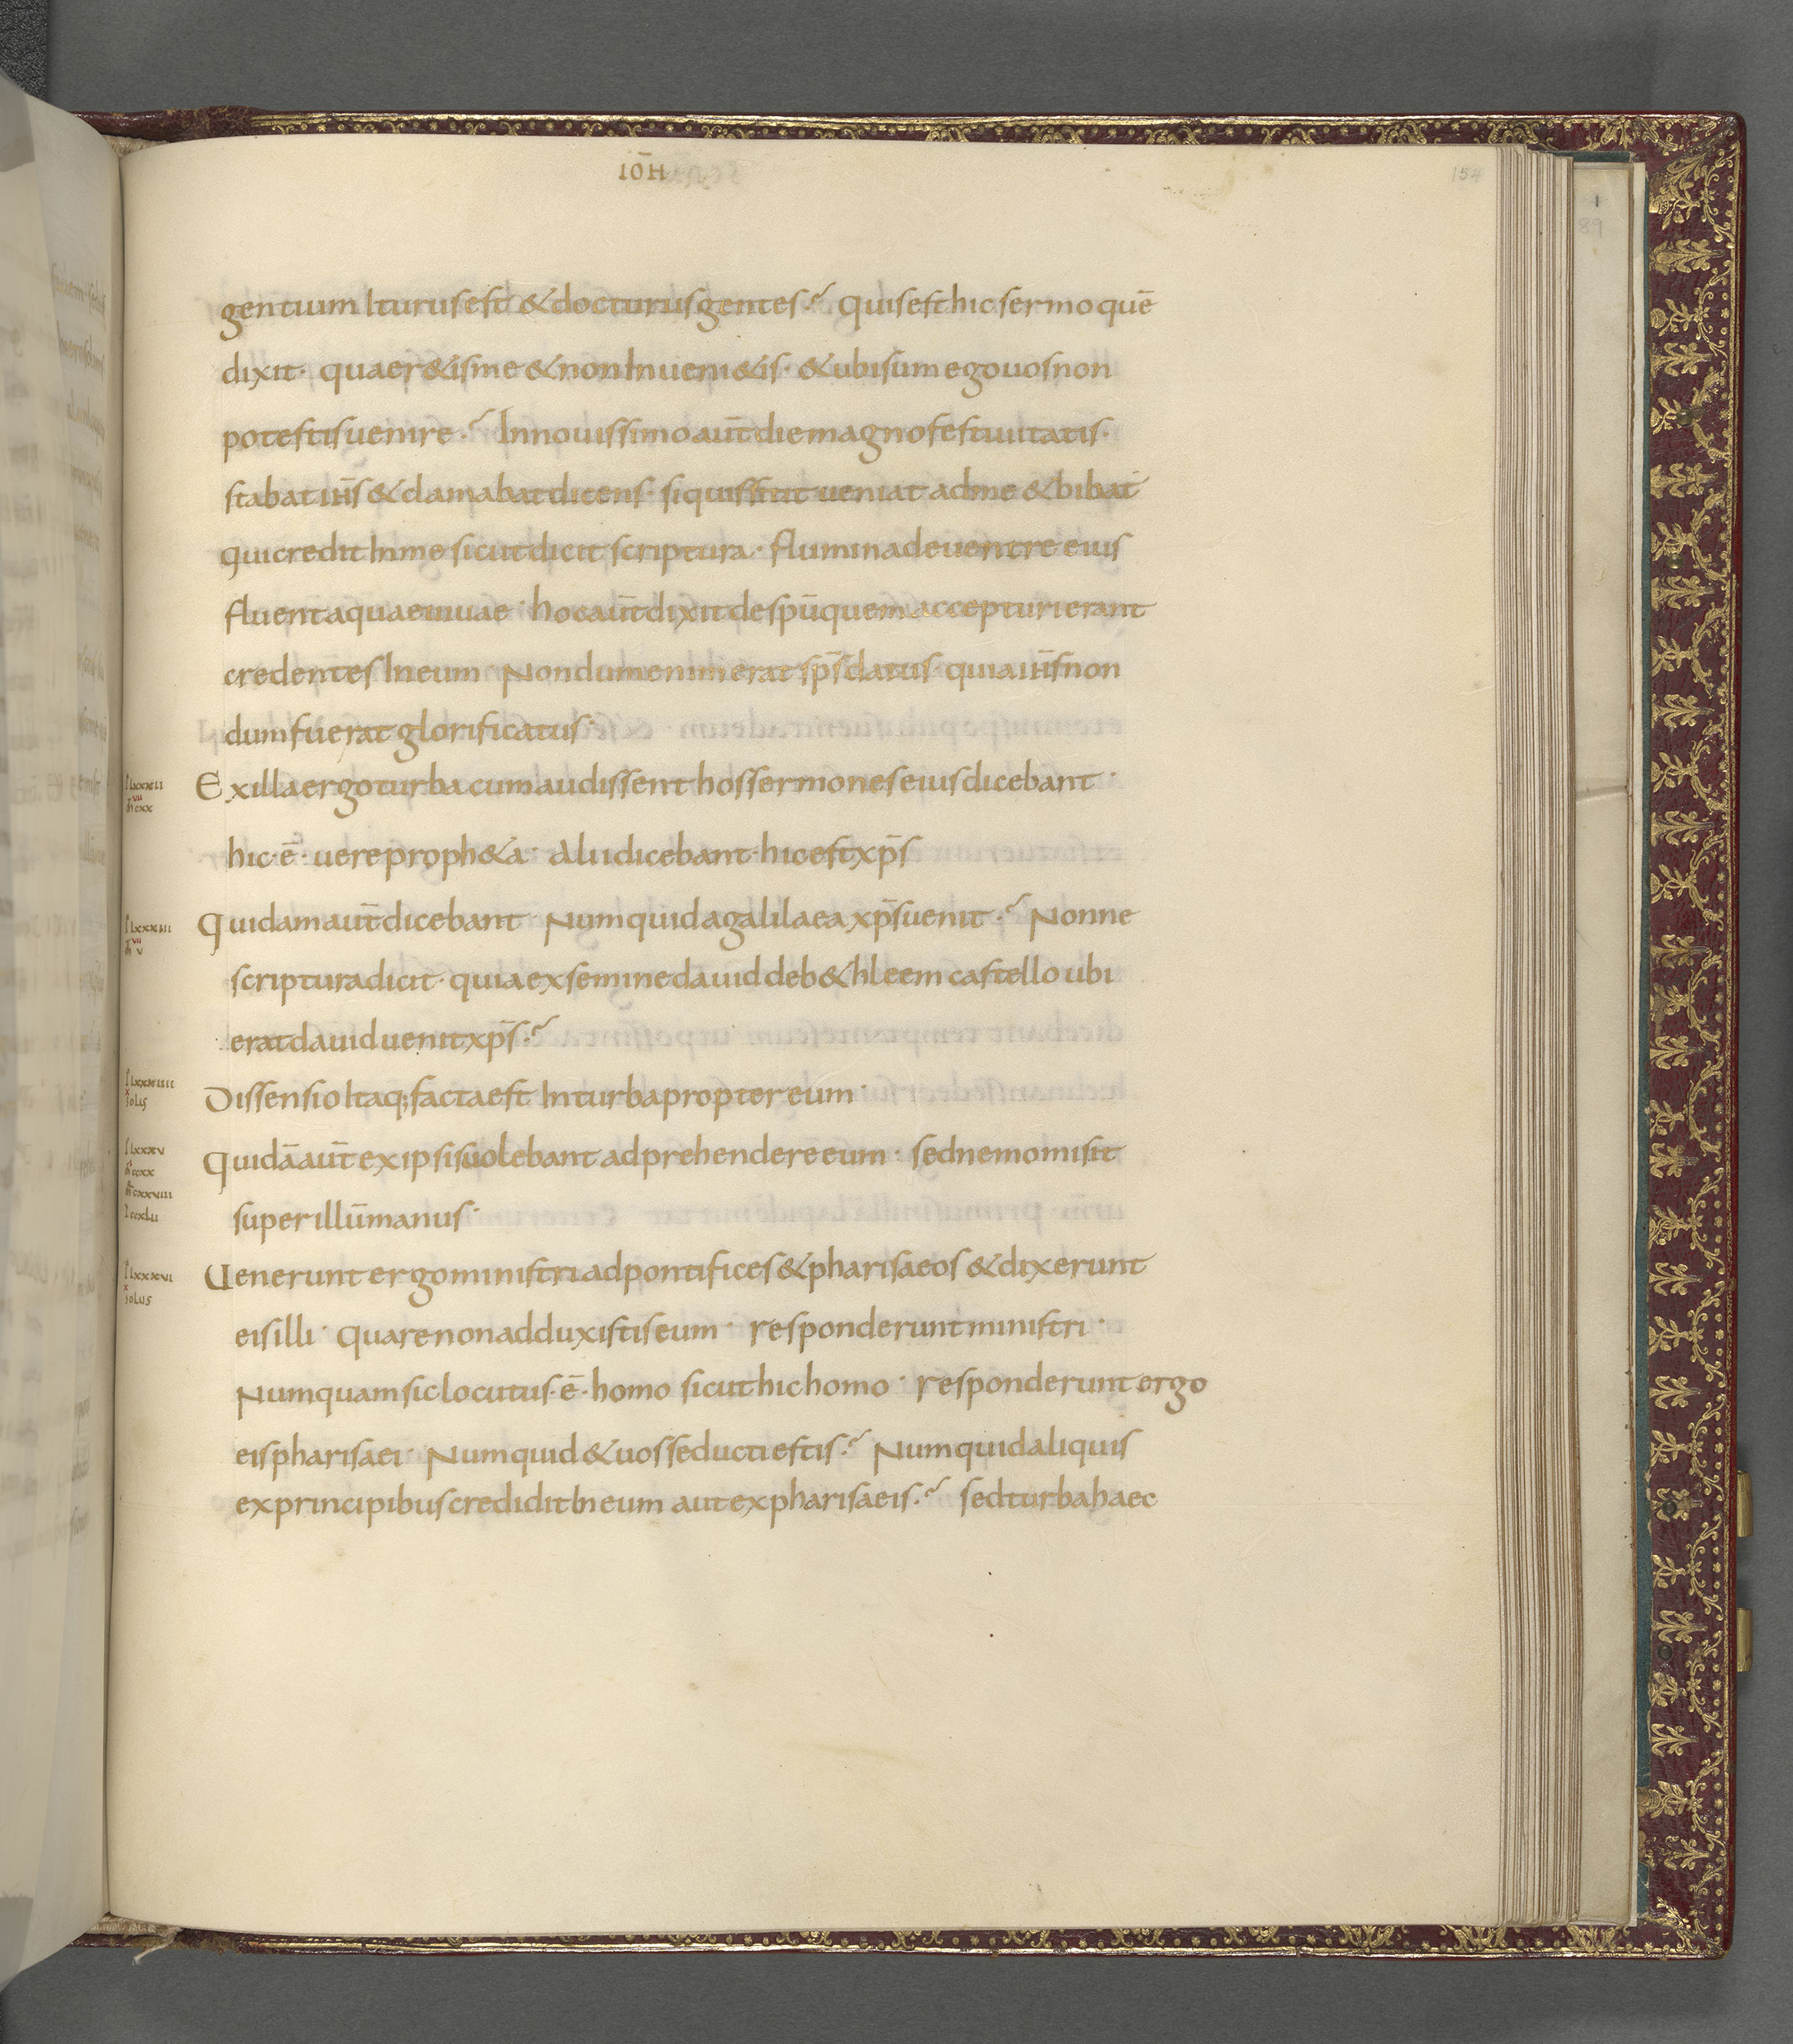 IOH̄
154
gentium Iturus est & docturus gentes? Quis est hic sermo quē
dixit· quaer&is me & non Inueni&is· & ubi sum ego uos non
potestis uenire? In nouissimo aūt die magno festiuitatis·
stabat ih̄s & clamabat dicens· si quis sitit ueniat ad me & bibat
qui credit In me sicut dicit scriptura· flumina de uentre eius
fluent aquae uiuae· hoc aūt dixit de sp̄u quem accepturi erant
credentes In eum Nondum enim erat sp̄s datus quia ih̄s non
dum fuerat glorificatus·
Ex illa ergo turba cum audissent hos sermones eius dicebant·
hic·ē·uere proph&a· alii dicebant·hic est xp̄s
Quidam aūt dicebant· Numquid a galilaea xp̄s uenit? Nonne
scriptura dicit· quia ex semine dauid de b&hleem castello ubi
erat dauid uenit xp̄s?
Dissensio Itaq; facta est In turba propter eum·
Quidā aūt ex ipsis uolebant adprehendere eum· sed nemo misit
super illū manus·
Uenerunt ergo ministri ad pontifices & pharisaeos & dixerunt
eis illi· Quare non adduxistis eum· responderunt ministri·
Numquam sic locutus·ē·homo sicut hic homo· responderunt ergo
eis pharisaei· Numquid & uos seducti estis? Numquid aliquis
ex principibus credidit In eum aut ex pharisaeis? sed turba haec
1
89